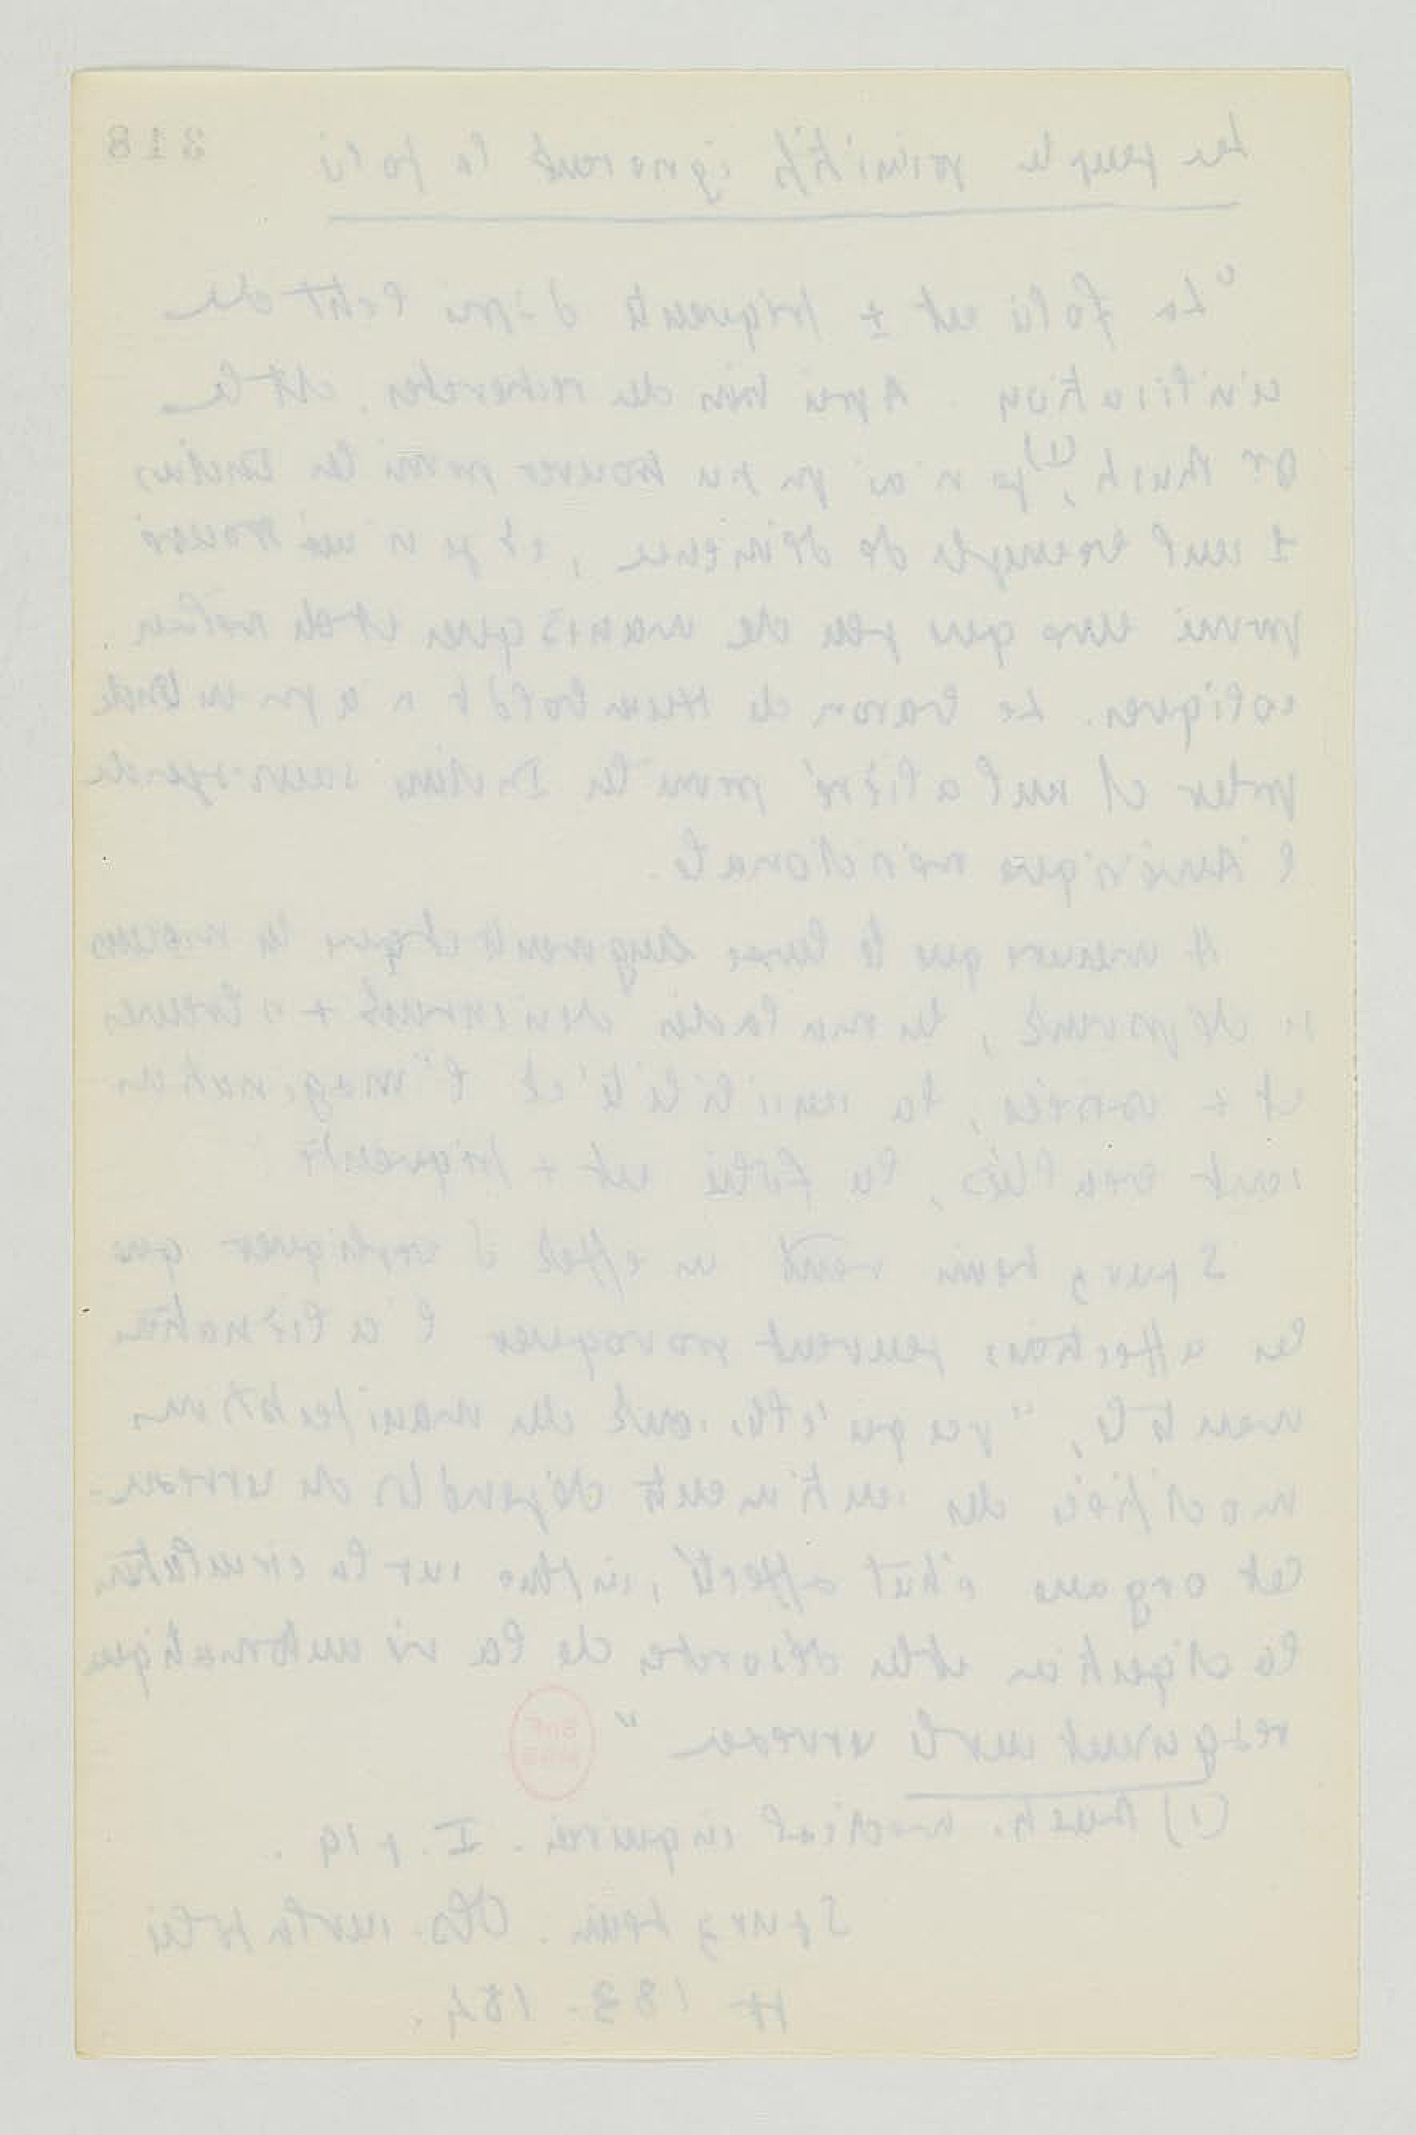 318
Les peuples primitifs ignorent la folie
"La folie est ± fréquente d'après l'état de
civilisation. Après bien des recherches, dit le
Dr Rush,(1) je n'ai pu trouver parmi les Indiens
1 seul exemple de démence, et je n'ai trouvé
parmi eux que peu de maniaques et de mélan
coliques. Le baron de Humboldt n'a pas entendu
parler d'1 seul aliéné parmi les Indiens sauvages de
l'Amérique méridionale.
A mesure que le luxe augmente et que les moeurs
se dépravent, les maladies deviennent + nombreuses
et + variées, la sensibilité et l'imagination
sont exaltées, la folie est + fréquente
Spurzheim vient en effet d'expliquer que
les affections peuvent provoquer l'aliénation
mentale, "parce qu'étant des manifestations
modifiées des sentiments dépendts du cerveau
cet organe étant affecté, influe sur la circulation
la digestion et les désordres de la vie automatique
réagissent sur le cerveau"
BnF
MSS
(1) Rush. medical inquiries. I. p 19.
Spurzheim. Obs. sur la folie
183-184.